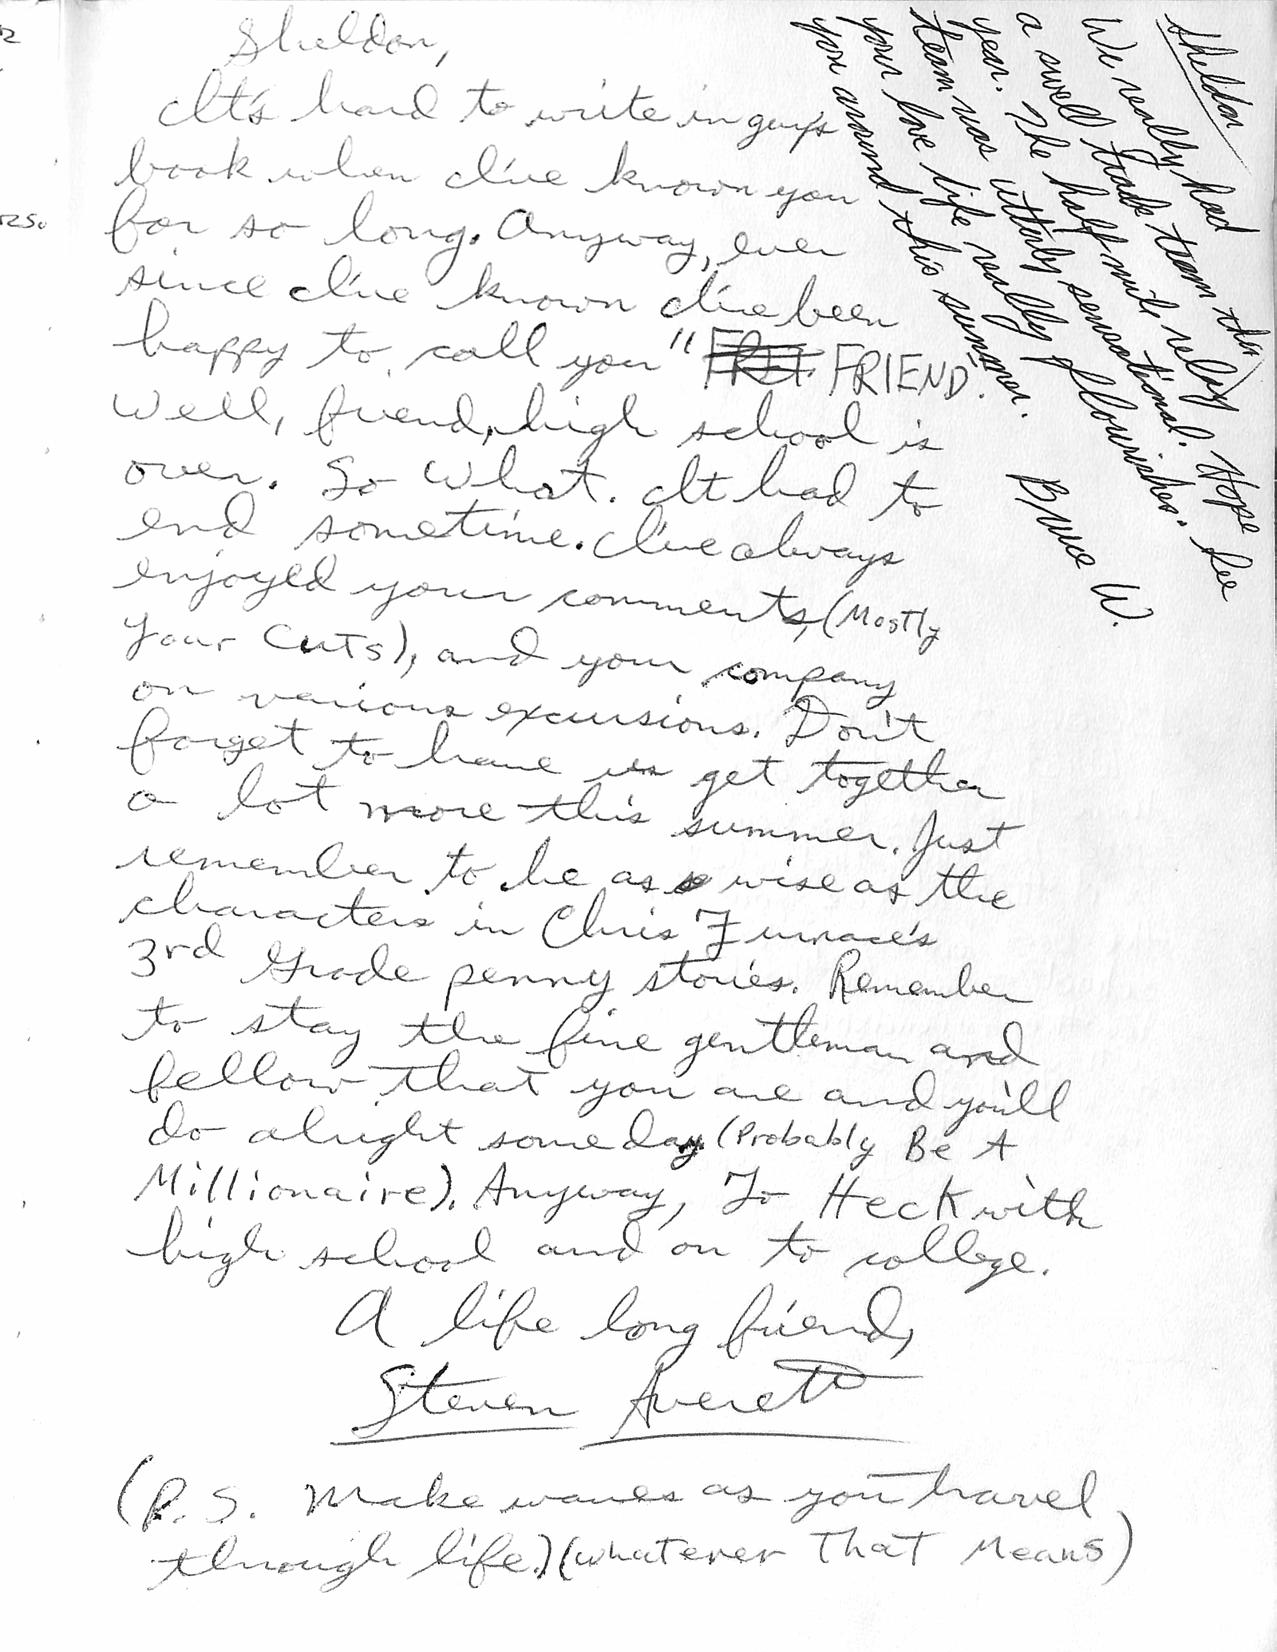 Sheldon,
It's hard to write in guy's
book when I've known you
for so long. Anyway, ever
since I've known I've been
happy to call you "FRI. FRIEND.
Well, friend, high school is
over. So What. It had to
end sometime. I've always
enjoyed your comments, (Mostly
Your Cuts), and your company
on various excursions. Don't
forget to have us get together
a lot more this summer. Just
remember to be as wise as the
characters in Chris Furnace's
3rd Grade penny stories. Remember
to stay the fine gentleman and
fellow that you are and you'll
do alright someday (Probably Be A
Millionaire). Anyway, To Heck with
high school and on to college.
A life long friend,
Steven Averett
(P.S. Make waves as you travel
through life.) (whatever That Means)
Sheldon
We really had
a swell track team this
year. The half mile relay
team was utterly sensational. Hope
your love life really flourishes. See
you around this summer.
Bruce W.